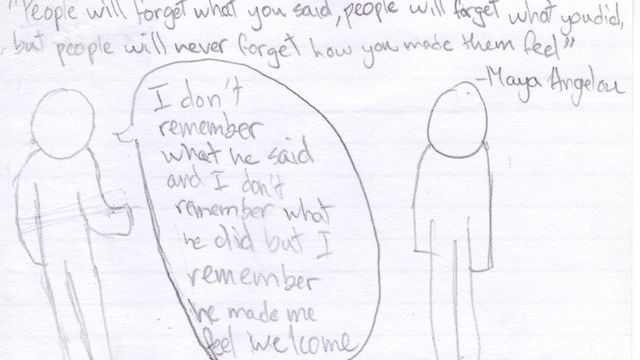 "People will forget what you said, people will forget what you did,
but people will never forget how you made them feel"
-Maya Angelou
I don't
remember
what he said
and I don't
remember what
he did but I
remember
he made me
feel welcome